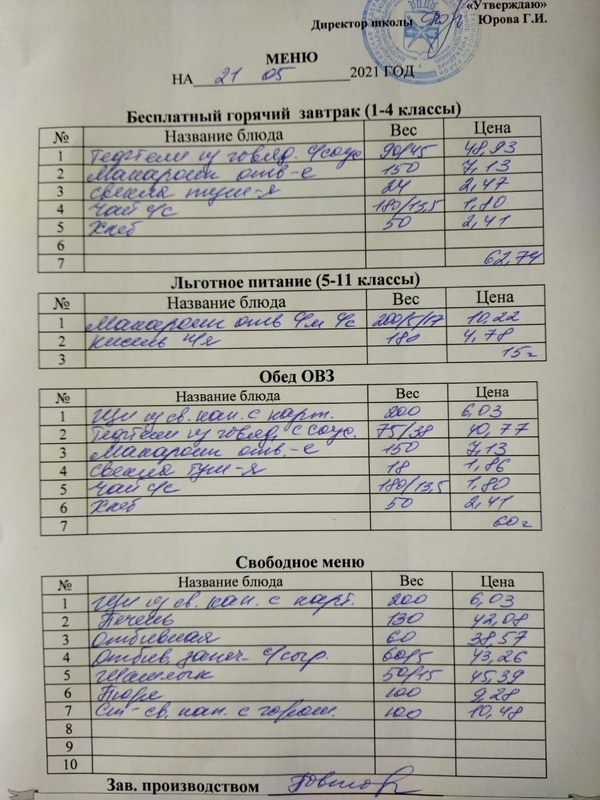 «Утверждаю»
Директор школы Юрова Г.И.
МЕНЮ
НА 21 05 2021 ГОД
Бесплатный горячий завтрак (1-4 классы)
№ Название блюда Вес Цена
1 Тефтели из говяд. с/соус 90/45 48,93
2 Макароны отв-е 150 7,13
3 свекла туш-я 24 2,47
4 Чай с/с 180/13,5 1,80
5 Хлеб 50 2,41
6
7 62,74
Льготное питание (5-11 классы)
№ Название блюда Вес Цена
1 Макароны отв с/м с/с 200/5/17 10,22
2 кисель 180 4,78
3 15=
Обед ОВЗ
№ Название блюда Вес Цена
1 Щи из св. кап. с карт. 200 6,03
2 Тефтели из говяд. с соус. 75/38 40,77
3 Макароны отв.-е 150 7,13
4 Свекла туш-я 18 1,86
5 Чай с/с 180/13,5 1,80
6 Хлеб 50 2,41
7 60=
Свободное меню
№ Название блюда Вес Цена
1 Щи из св. кап. с карт. 200 6,03
2 Печень 130 42,08
3 Отбивная 60 38,57
4 Отбив. запеч- с/сыр. 60/5 43,26
5 Шашлык 50/15 45,39
6 Пюре 100 9,28
7 Ст-св. кап. с горош. 100 10,48
8
9
10
Зав. производством